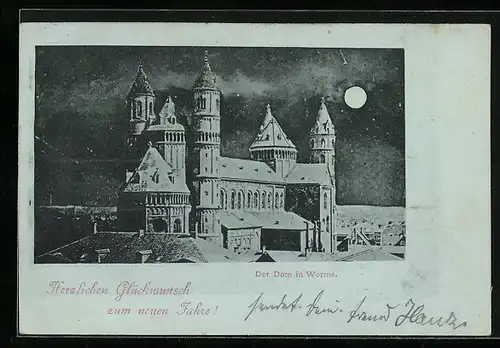 Der Dom in Worms.
Herzlichen Glückwunsch
zum neuen Jahre!
sendet Dein